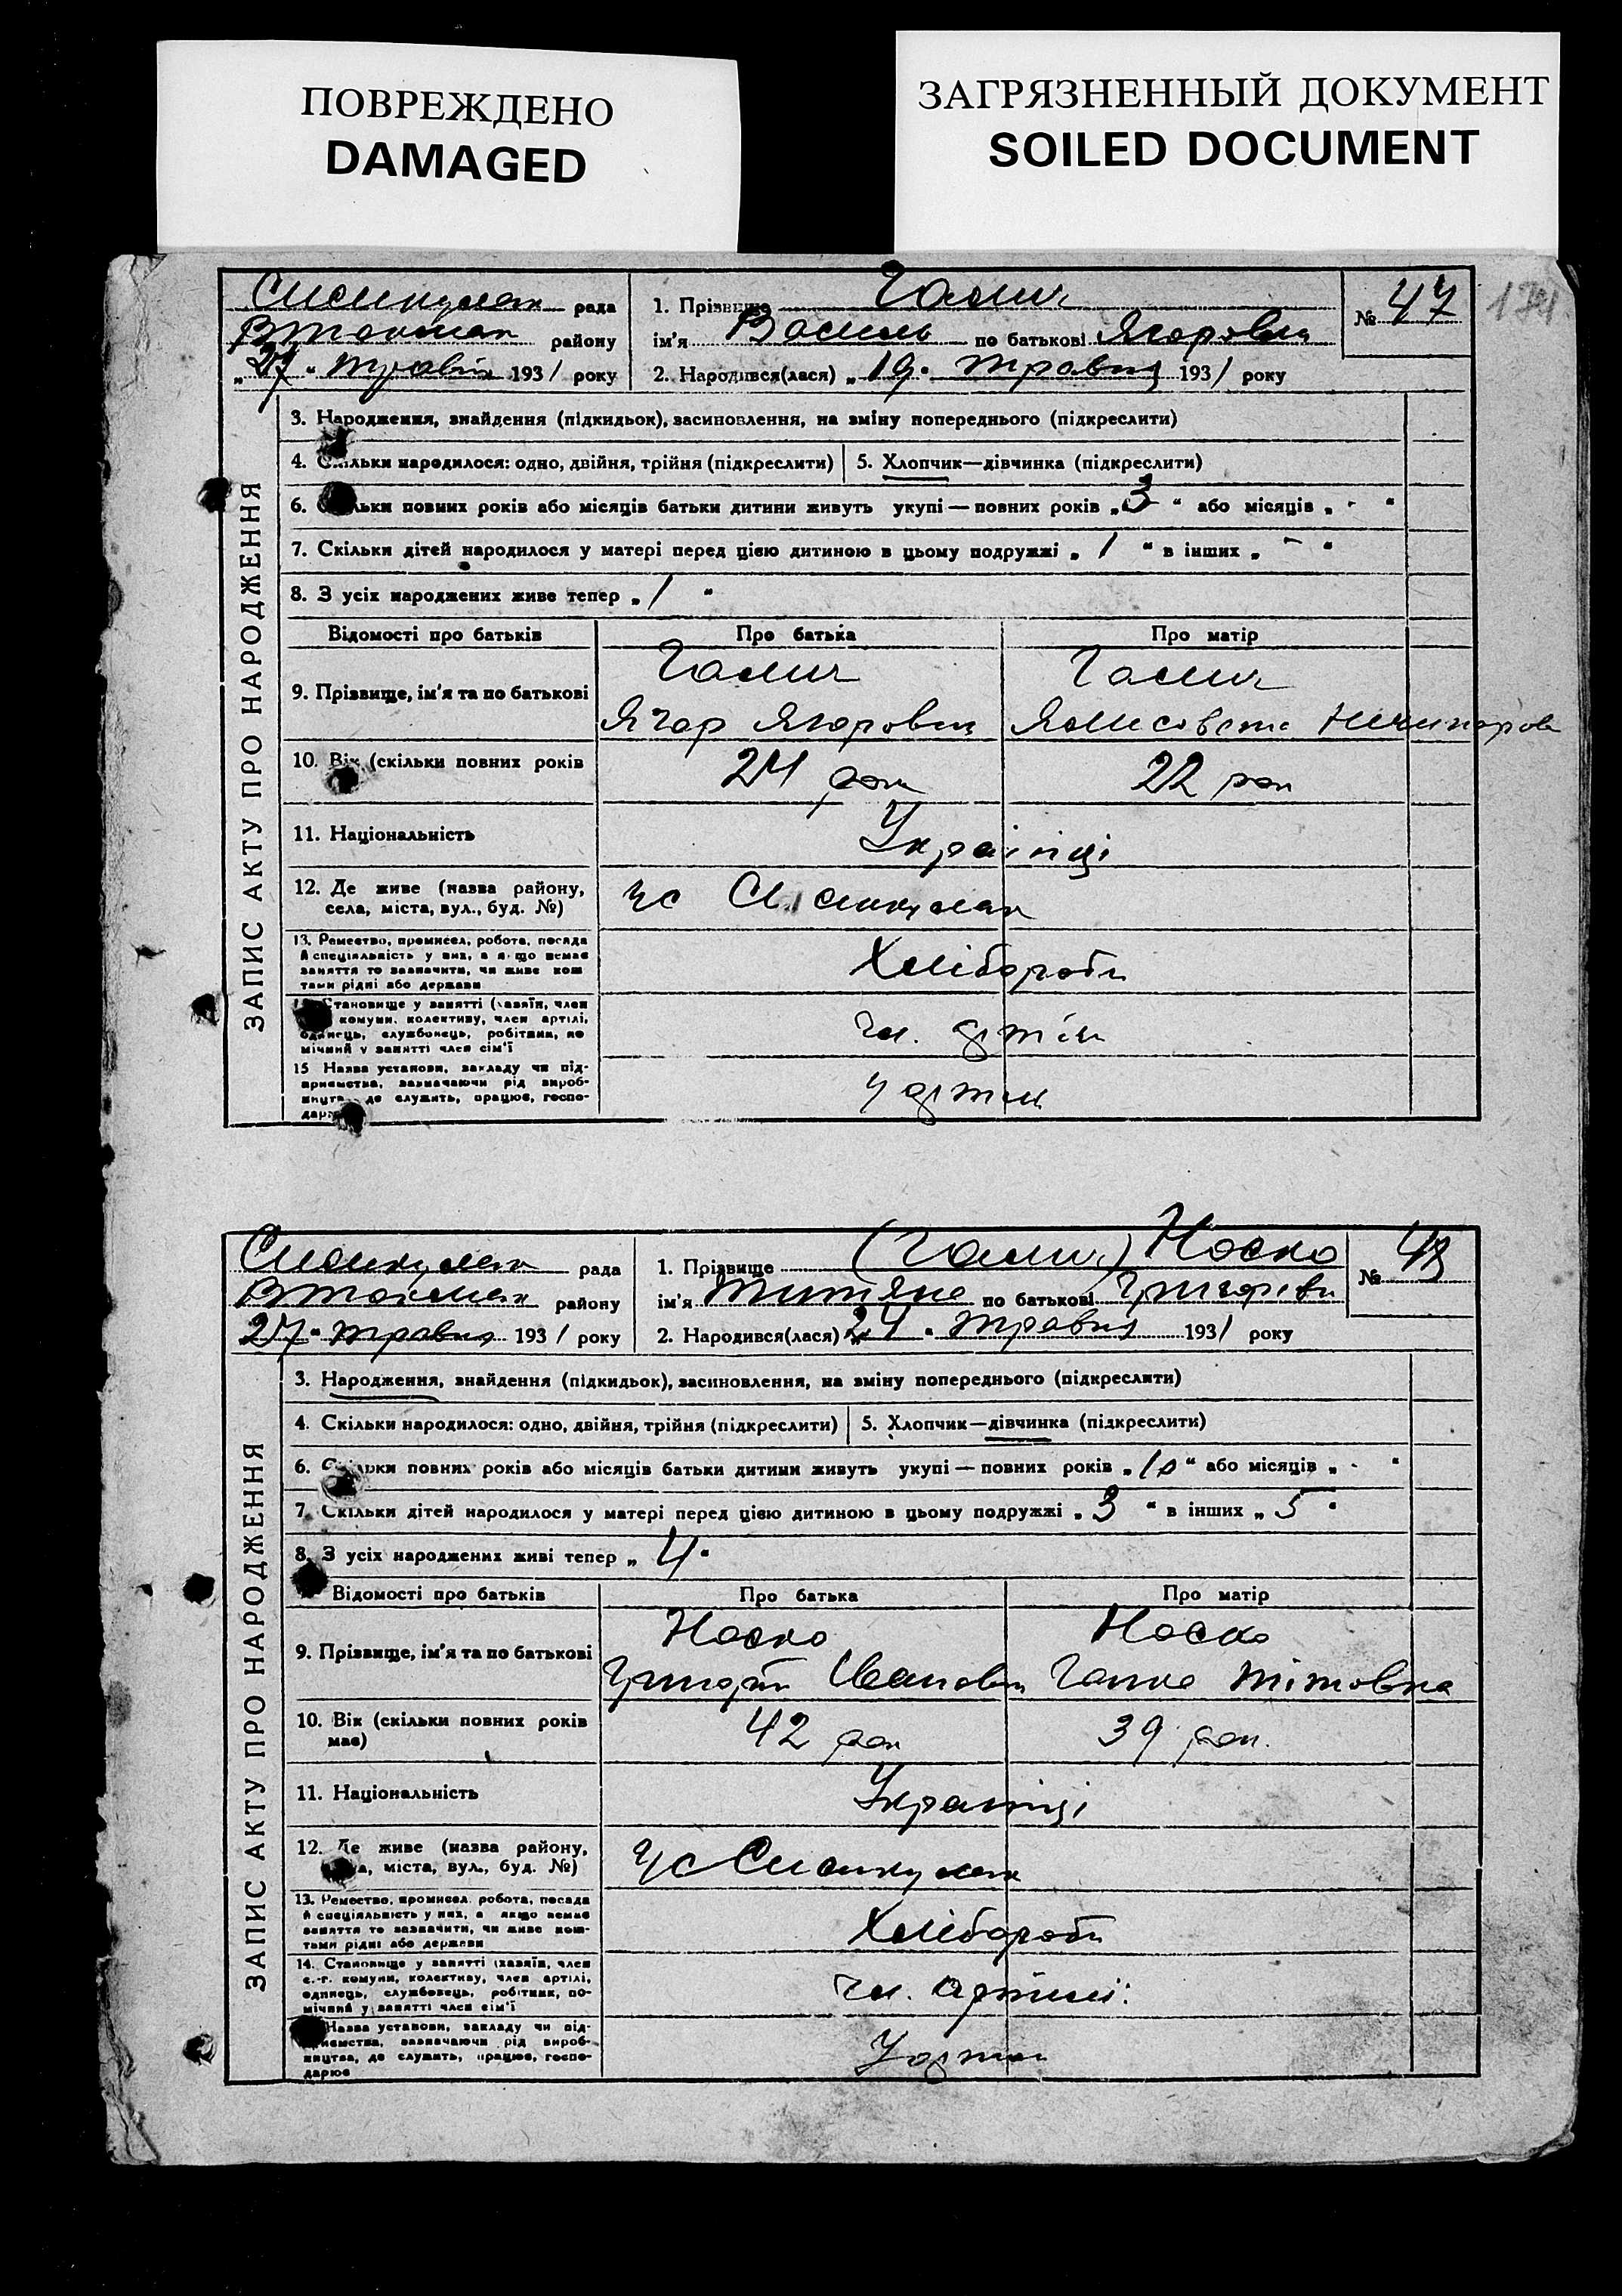 ПОВРЕЖДЕНО
DAMAGED
ЗАГРЯЗНЕННЫЙ ДОКУМЕНТ
SOILED DOCUMENT
рада
району
„27“ травня 1931 року
1. Прізвище Галич
ім'я Василь по батькові Ягорович
2. Народився(лася) „19“ травня 1931 року
№ 47
ЗАПИС АКТУ ПРО НАРОДЖЕННЯ
3. Народження, знайдення (підкидьок), засиновлення, на зміну попереднього (підкреслити)
4. Скільки народилося: одно, двійня, трійня (підкреслити) 5. Хлопчик—дівчинка (підкреслити)
6. Скільки повних років або місяців батьки дитини живуть укупі — повних років „3“ або місяців „-“
7. Скільки дітей народилося у матері перед цією дитиною в цьому подружжі „1“ в інших „-“
8. З усіх народжених живе тепер „1“
Відомості про батьків Про батька Про матір
9. Прізвище, ім'я та по батькові
Галич Галич
Ягор Ягорович
10. Вік (скільки повних років
24 рок 22 рок
11. Національність Українці
12. Де живе (назва району,
села, міста, вул., буд. №)
13. Ремество, промисел, робота, посада
й спеціяльність у них, а якщо немає
заняття то зазначити, чи живе кош
тами рідні або держави
Хлібороби
14. Становище у занятті (хазяїн, член
комуни, колективу, член артілі,
одинець, службовець, робітник, по
мічний у занятті член сім'ї
чл.
15 Назва установи, закладу чи під-
приємства, зазначаючи рід вироб-
ництва, де служить, працює, госпо-
дарює
рада
району
27“ травня 1931 року
1. Прізвище (Галич) Носко
ім'я по батькові
2. Народився(лася) „24“ травня 1931 року
№ 48
ЗАПИС АКТУ ПРО НАРОДЖЕННЯ
3. Народження, знайдення (підкидьок), засиновлення, на зміну попереднього (підкреслити)
4. Скільки народилося: одно, двійня, трійня (підкреслити) 5. Хлопчик—дівчинка (підкреслити)
6. Скільки повних років або місяців батьки дитини живуть укупі — повних років „10“ або місяців „-“
7. Скільки дітей народилося у матері перед цією дитиною в цьому подружжі „3“ в інших „5“
8. З усіх народжених живі тепер „4“
Відомості про батьків Про батька Про матір
9. Прізвище, ім'я та по батькові
Носко Носко
Іванович Ганна Тітовна
10. Вік (скільки повних років
має)
42 рок 39 рок.
11. Національність Українці
12. Де живе (назва району,
села, міста, вул., буд. №)
13. Ремество, промисел, робота, посада
й спеціяльність у них, а якщо немає
заняття то зазначити, чи живе кош-
тами рідні або держави
Хлібороби
14. Становище у занятті (хазяїн, член
с.-г. комуни, колективу, член артілі,
одинець, службовець, робітник, по-
мічний у занятті член сім'ї
чл. артілі
Назва установи, закладу чи під-
приємства, зазначаючи рід вироб-
ництва, де служить, працює, госпо-
дарює